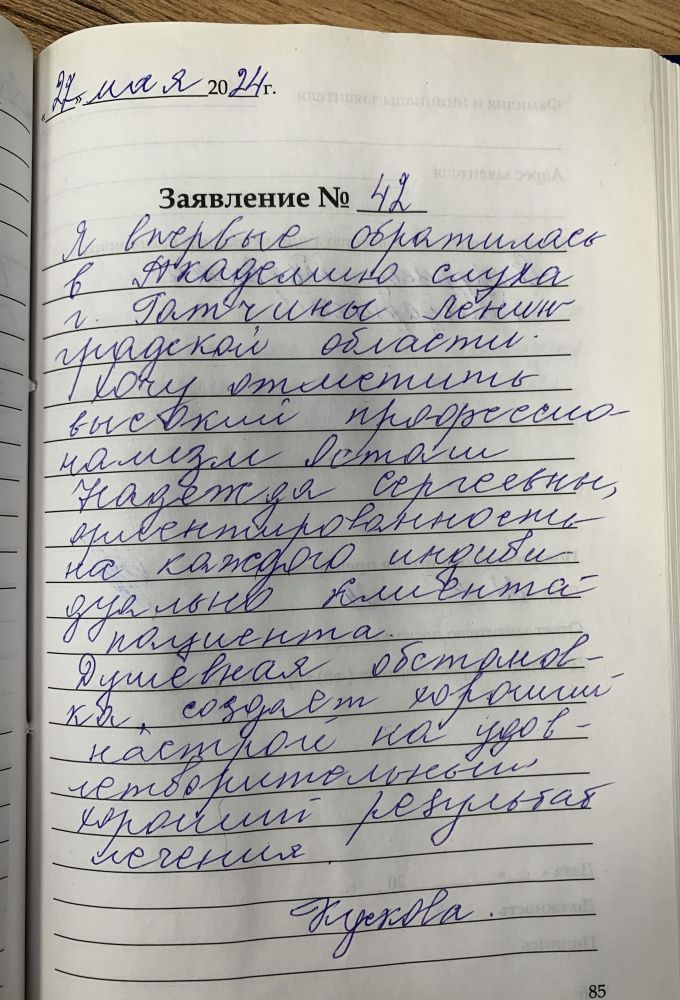 «27» мая 2024 г.
Заявление № 42
Я впервые обратилась
в Академию слуха
г. Гатчины Ленин
градской области.
Хочу отметить
высокий профессио-
нализм
Надежда Сергеевны,
ориентированность
на каждого индиви-
дуально клиента
пациента.
Душевная обстанов-
ка, создает хороший
настрой на удов-
летворительный
хороший результат
лечения.
85